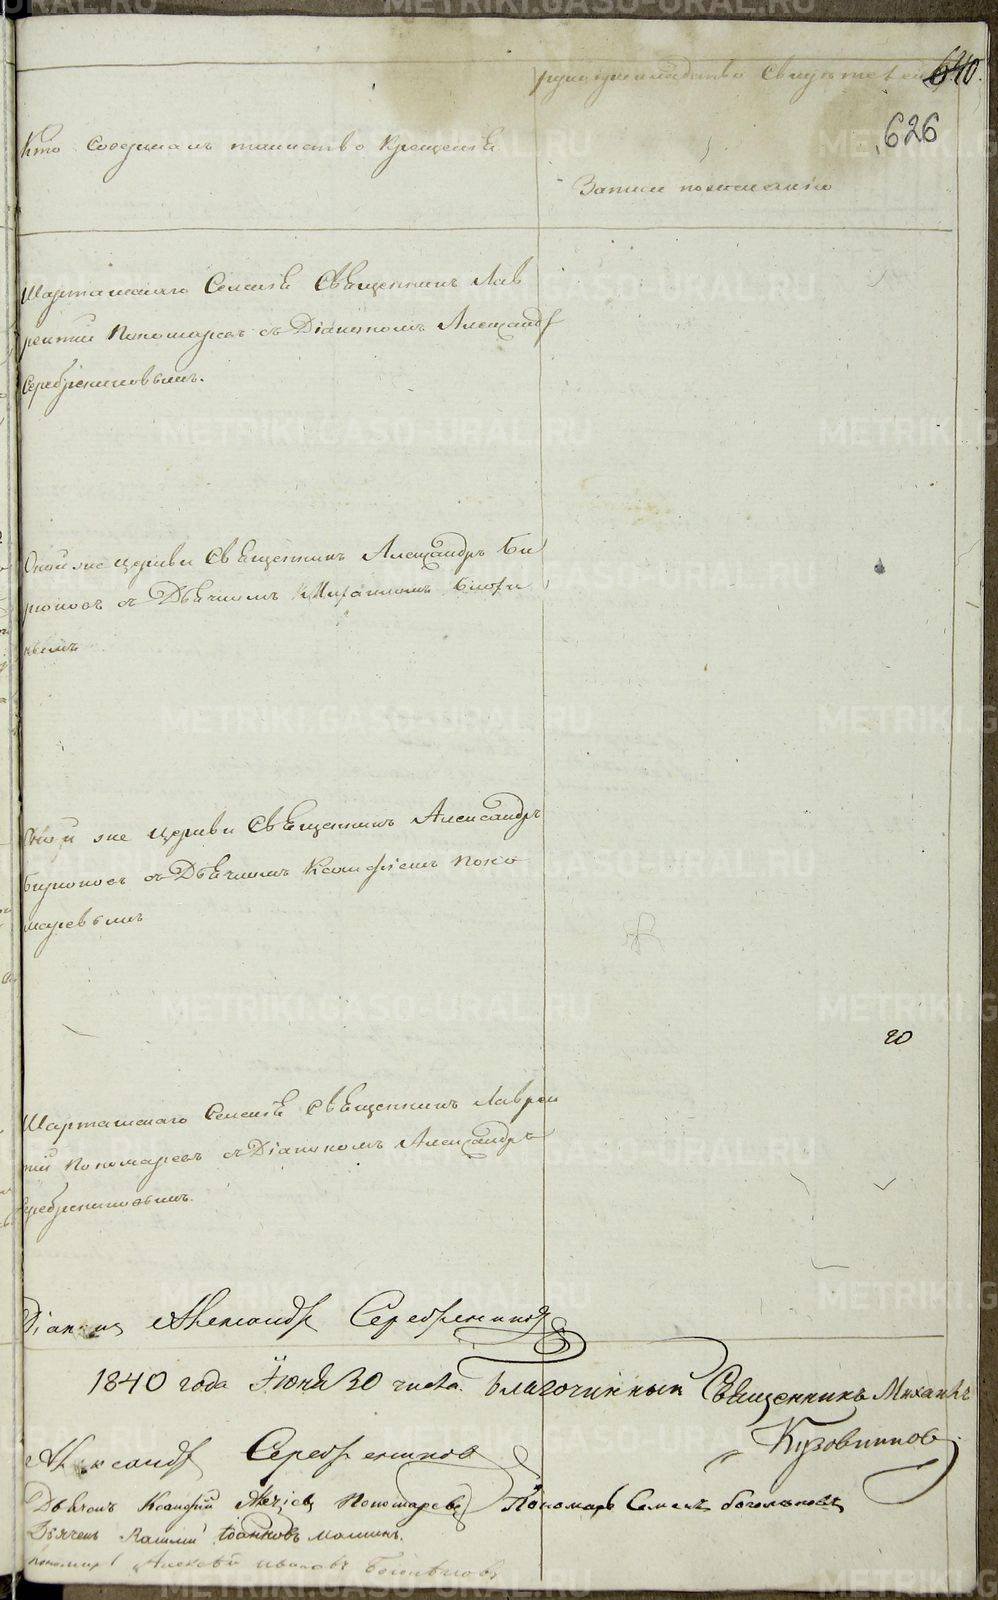 Рукоприкладство Свидетелей
640.
626
Кто совершалъ таинство крещенія
Записи по желанію
Шарташскаго Селенія Священникъ Лав
рентій Пономаревъ съ Діакономъ Александр
Серебрениковымъ.
Оной же церкви Священникъ Александръ Би
рюковъ съ Дьячкомъ
Оной же церкви Священникъ Александръ
Бирюковъ съ Дьячкомъ Ксенофонтомъ Поно
маревымъ
20
Шарташскаго Селенія Священникъ Лаврен
тій Пономаревъ съ Діакономъ Александръ
Серебрениковымъ.
Діаконъ Александръ Серебрениковъ
1840 года Іюня 30 числа. Благочинный Священникъ Михаилъ
Кузовниковъ.
Александръ Серебрениковъ
Дьячекъ Пономаревъ Пономарь Семенъ
Дьячекъ Іоанновъ
Пономарь Алексѣй